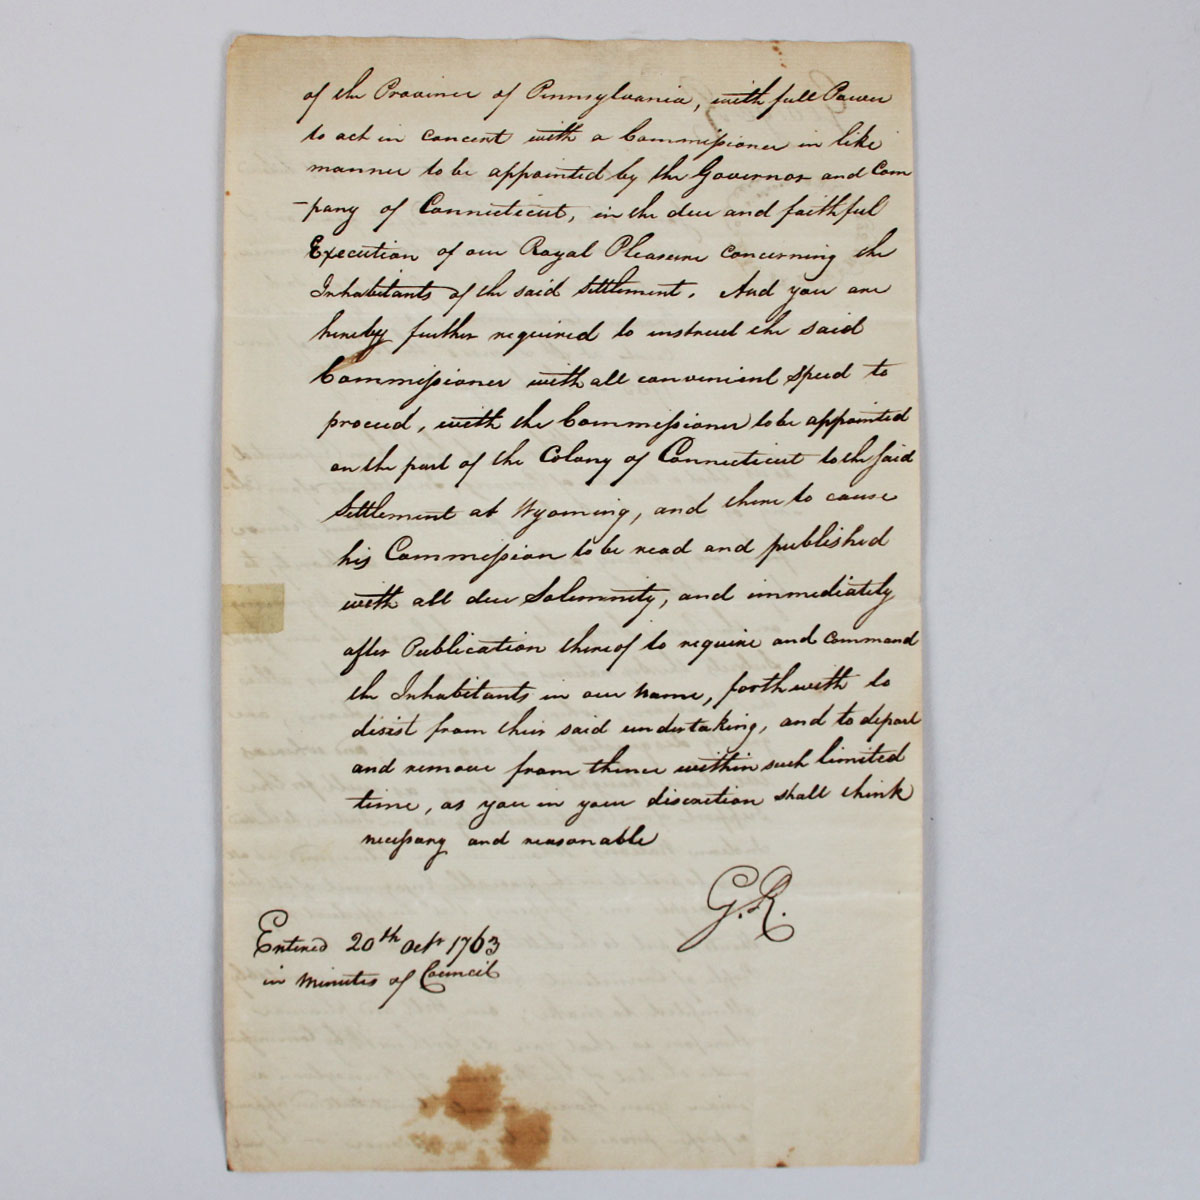 of the Province of Pennsylvania, with full Power
to act in concert with a Commissioner in like
manner to be appointed by the Governor and Com
-pany of Connecticut, in the due and faithful
Execution of our Royal Pleasure concerning the
Inhabitants of the said Settlement. And you are
hereby further required to instruct the said
Commissioner with all convenient speed to
proceed, with the Commissioner to be appointed
on the part of the Colony of Connecticut to the said
Settlement at Wyoming, and there to cause
his Commission to be read and published
with all due Solemnity, and immediately
after Publication thereof to require and command
the Inhabitants in our name, forthwith to
desist from their said undertaking, and to depart
and remove from thence within such limited
time, as you in your discretion shall think
necessary and reasonable
G.R.
Entered 20th Octr 1763
in Minutes of Council